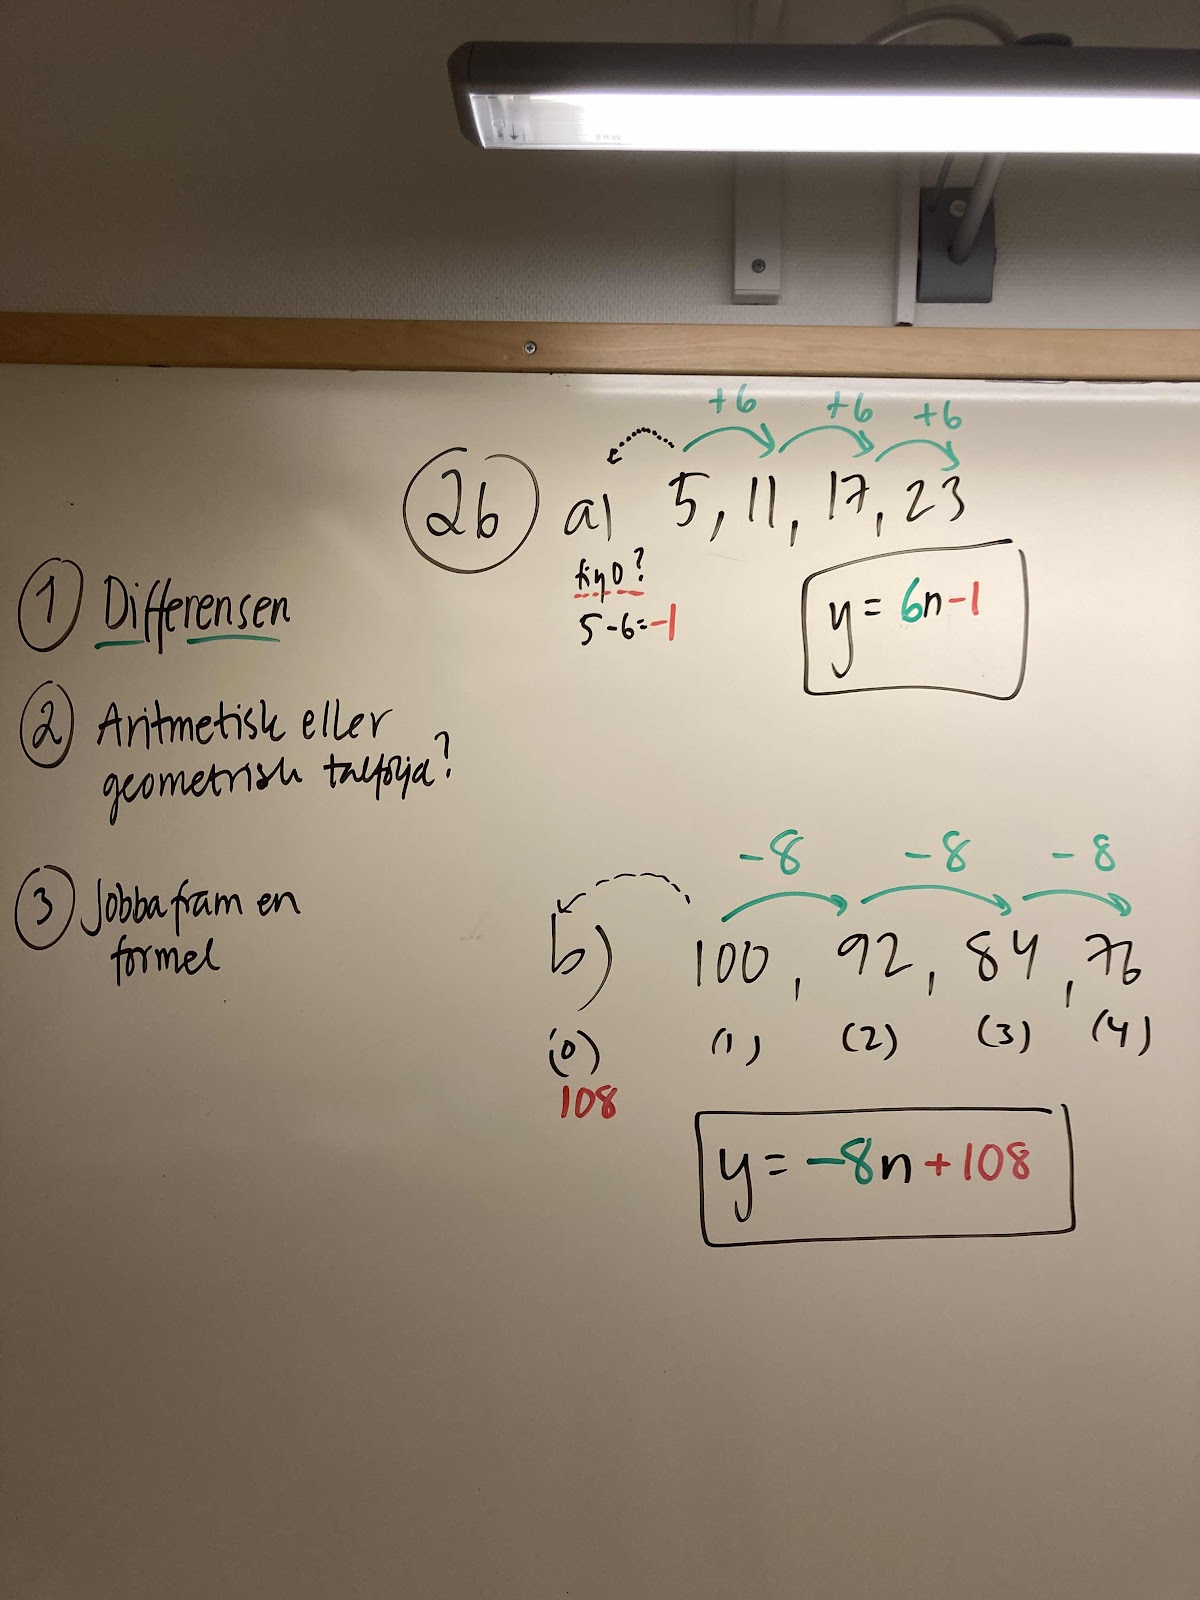 +6 +6 +6
26 a) 5, 11, 17, 23
fig 0?
5-6=-1
y = 6n-1
1 Differensen
2 Aritmetisk eller
geometrisk talföljd?
3 Jobba fram en
formel
-8 -8 -8
b) 100, 92, 84, 76
(0) (1) (2) (3) (4)
108
y = -8n + 108